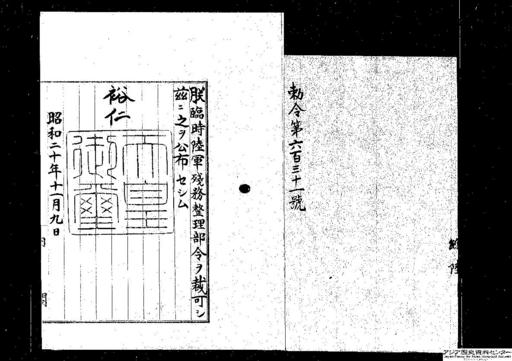 勅令第六百三十一號
朕臨時陸軍殘務整理部令ヲ裁可シ
茲ニ之ヲ公布セシム
裕仁
天皇御璽
昭和二十年十一月九日
内閣
アジア歴史資料センター